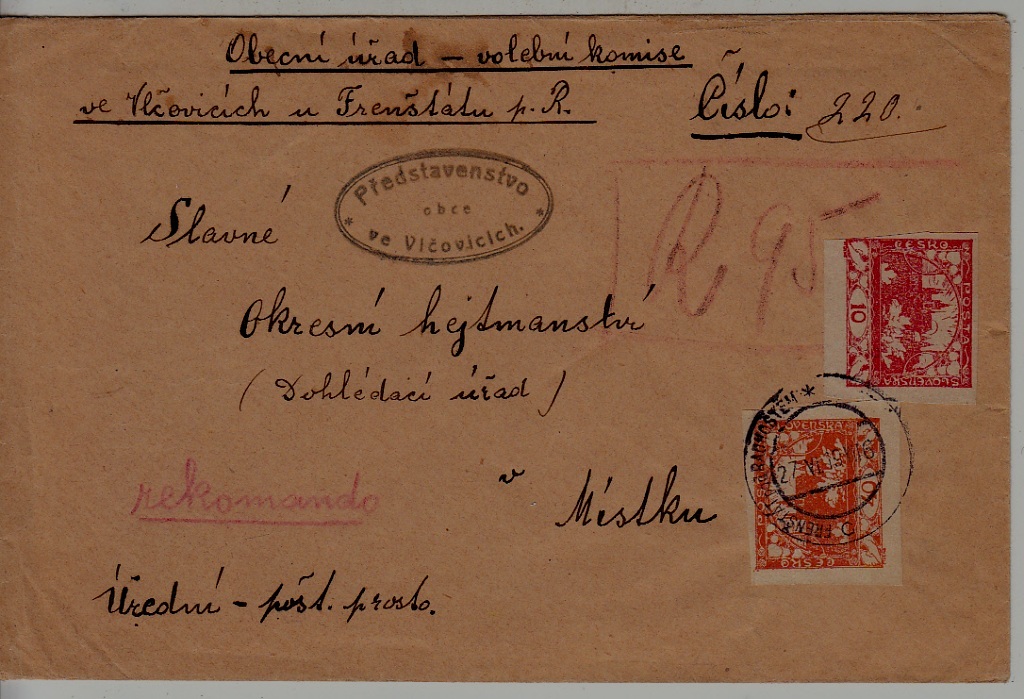 Obecní úřad – volební komise
ve Vlčovicích u Frenštátu p. R.
Číslo: 220.
Představenstvo
obce
* ve Vlčovicích. *
R 95
Slavné
Okresní hejtmanství
(Dohlédací úřad)
v Místku
rekomando
Úřední – pošt. prosto.
ČESKO
POŠTA
SLOVENSKÁ
10
SLOVENSKÁ
ČESKO
RADHOŠTĚM *
27